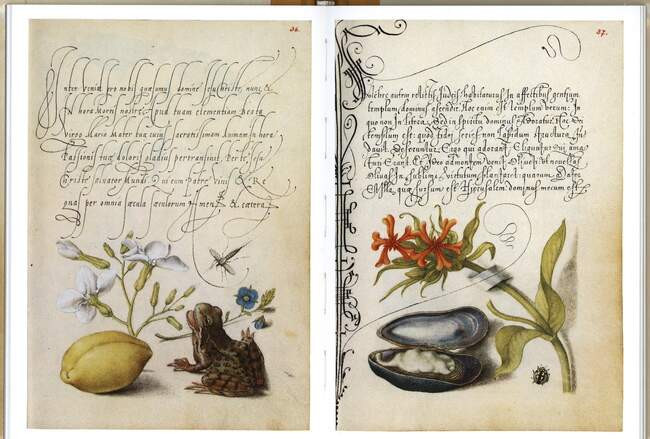 36.
nterveniat pro nobis quæsumus domine Jesu christe, nunc &
in hora Mortis nostræ apud tuam clementiam Beata
Virgo Maria Mater tua cuius sacratissimam animam in hora
Passionis tuæ doloris gladius pertransivit. Per te Jesu
christe salvator Mundi. Qui cum Patre vivis & Re
gnas per omnia sæcula sæculorum Amen. & cætera
37.
autem relictis Judeis habitaturus In affectibus gentium
templum dominus ascendit. Hoc enim est templum verum: In
quo non In litera, Sed in spiritu dominus Adoratur. Hoc Dei
templum est: quod fidei series non lapidum structura fun
davit. Deseruntur Ergo qui oderant. Eliguntur qui ama
turi Erant. Et Ideo ad montem venit Oliveti: Vt novellas
Olivas In sublimi virtutum plantaret: quarum Mater
Est illa, quæ sursum est Hierusalem: dominus mecum est &